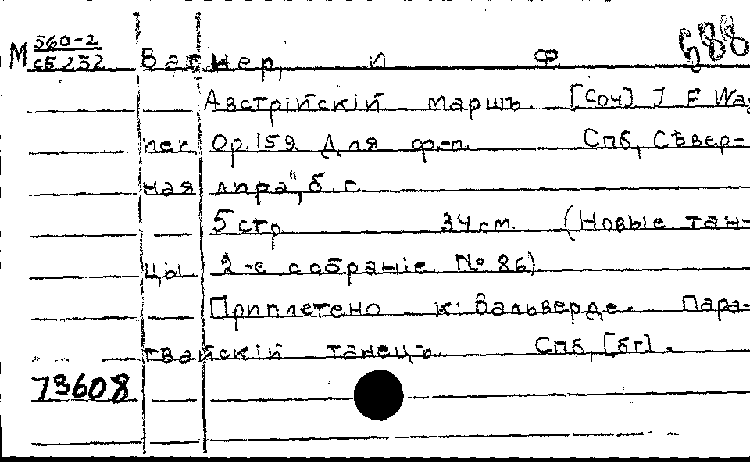 М 560-2
сб 232
688
Вагнер, И Ф
Австрійскій маршъ. [Соч] J F Wag
ner. Op. 159 Для ф-п. Спб, Сѣвер-
ная лира", б. г.
5 стр 34 см. (Новые тан-
цы 2-е собраніе № 86)
Приплетено к: Вальверде. Пара-
гвайскій танецъ. Спб, [бг].
73608